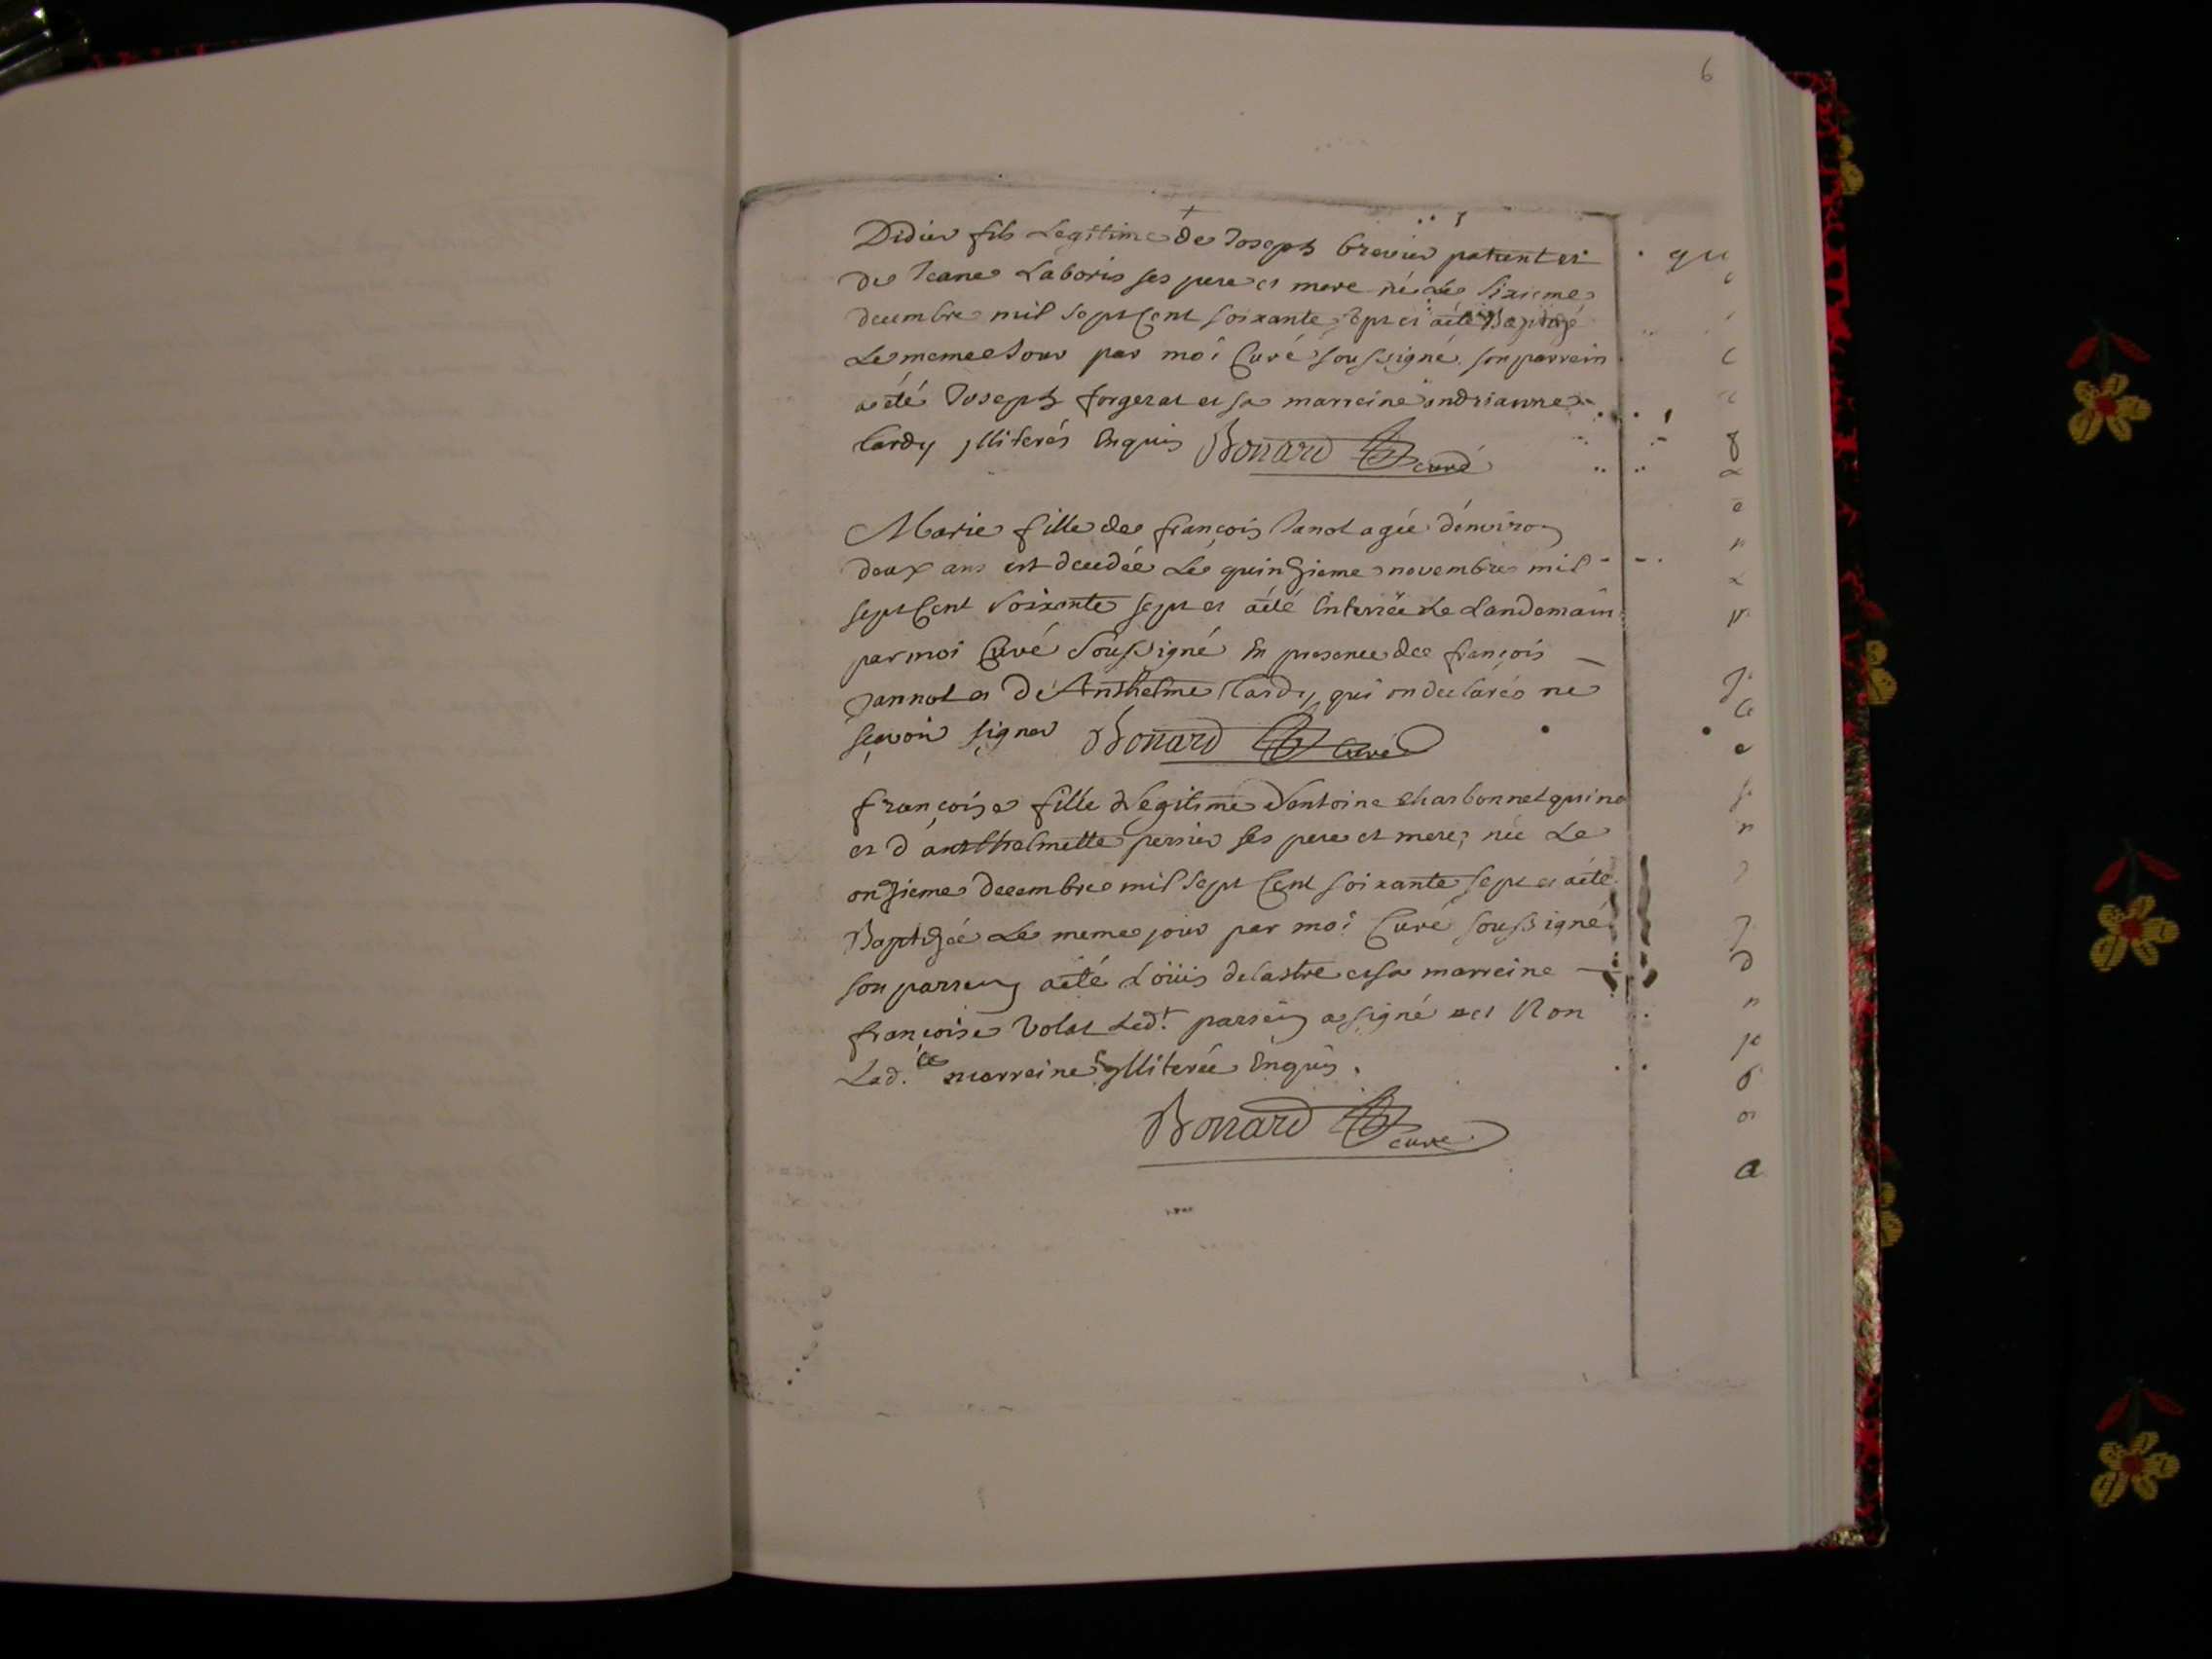 6
Didier fils Legitime de Joseph brevier patient et
de Jeane Laboris ses pere et mere né Le Sixieme
decembre mil sept Cent soixante sept et aété Baptizé
Le meme Jour par moi Curé soussigné. son parrein
a été Joseph forgerat et sa marreine andrianne
tardy jlliterés Enquis Bonard curé
Marie fille de françois Janot agée d'environ
deux ans est decedée Le quinzieme novembre mil
sept Cent soixante sept et aété Enterrée Le Landemain
par moi Curé Soussigné En presence de françois
Jannot et de Anthelme tardy, qui on declarés ne
sçavoir signer Bonard Curé
françoise fille Legitime d'antoine charbonnet
et d'anthelmette perrier ses pere et mere, née Le
onzieme decembre mil sept Cent soixante sept et aété
Baptizée Le meme jour par moi Curé soussigné
son parrein aété Loüis delastre et sa marreine
françoise Volat Led.t parrein a signé et Non
Lad.te marreine jlliterée Enquis.
Bonard curé